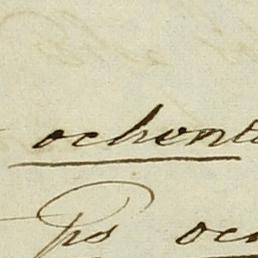 ochenta
ps och